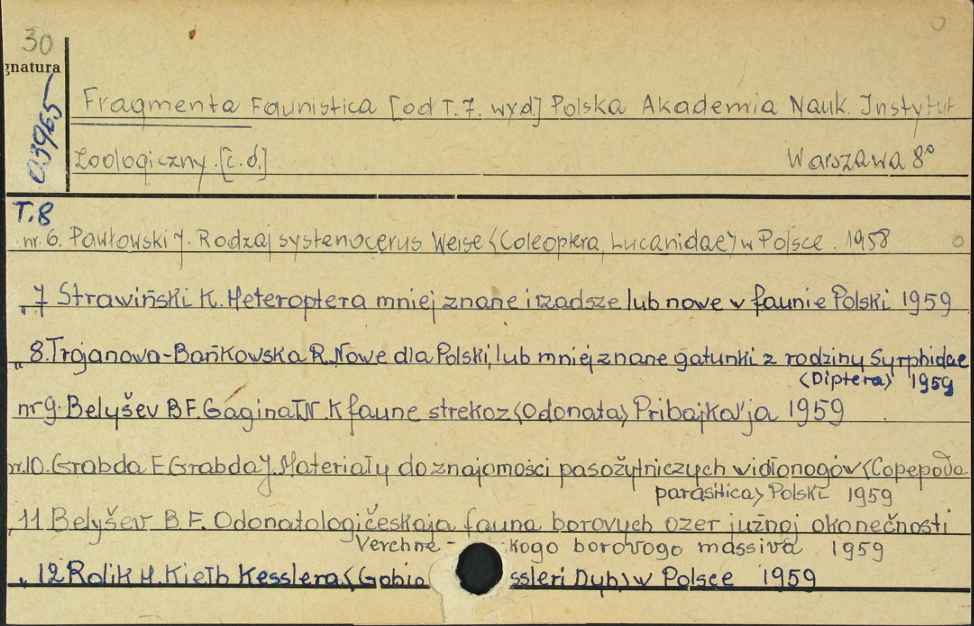 30
gnatura
03965
Fragmenta Faunistica [od T.7. wyd] Polska Akademia Nauk. Instytut
Zoologiczny. [c.d.] Warszawa 8°
T.8
nr 6. Pawłowski J. Rodzaj systenocerus Weise <Coleoptera, Lucanidae> w Polsce. 1958
" 7 Strawiński K. Heteroptera mniej znane i rzadsze lub nowe w faunie Polski 1959
" 8. Trojanowa-Bańkowska R. Nowe dla Polski, lub mniej znane gatunki z rodziny Syrphidae
<Diptera> 1959
nr 9. Belyšev B.F. Gagina T.N. K faune strekoz <Odonata> Pribajkal'ja 1959
nr.10. Grabda E. Grabda J. Materiały do znajomości pasożytniczych widłonogów <Copepoda
parasitica> Polski 1959
" 11 Belyšev B.F. Odonatologičeskaja fauna borovych ozer južnoj okonečnosti
Verchne- kogo borovogo massiva 1959
" 12 Rolik H. Kiełb Kesslera <Gobio ssleri Dyb.> w Polsce 1959